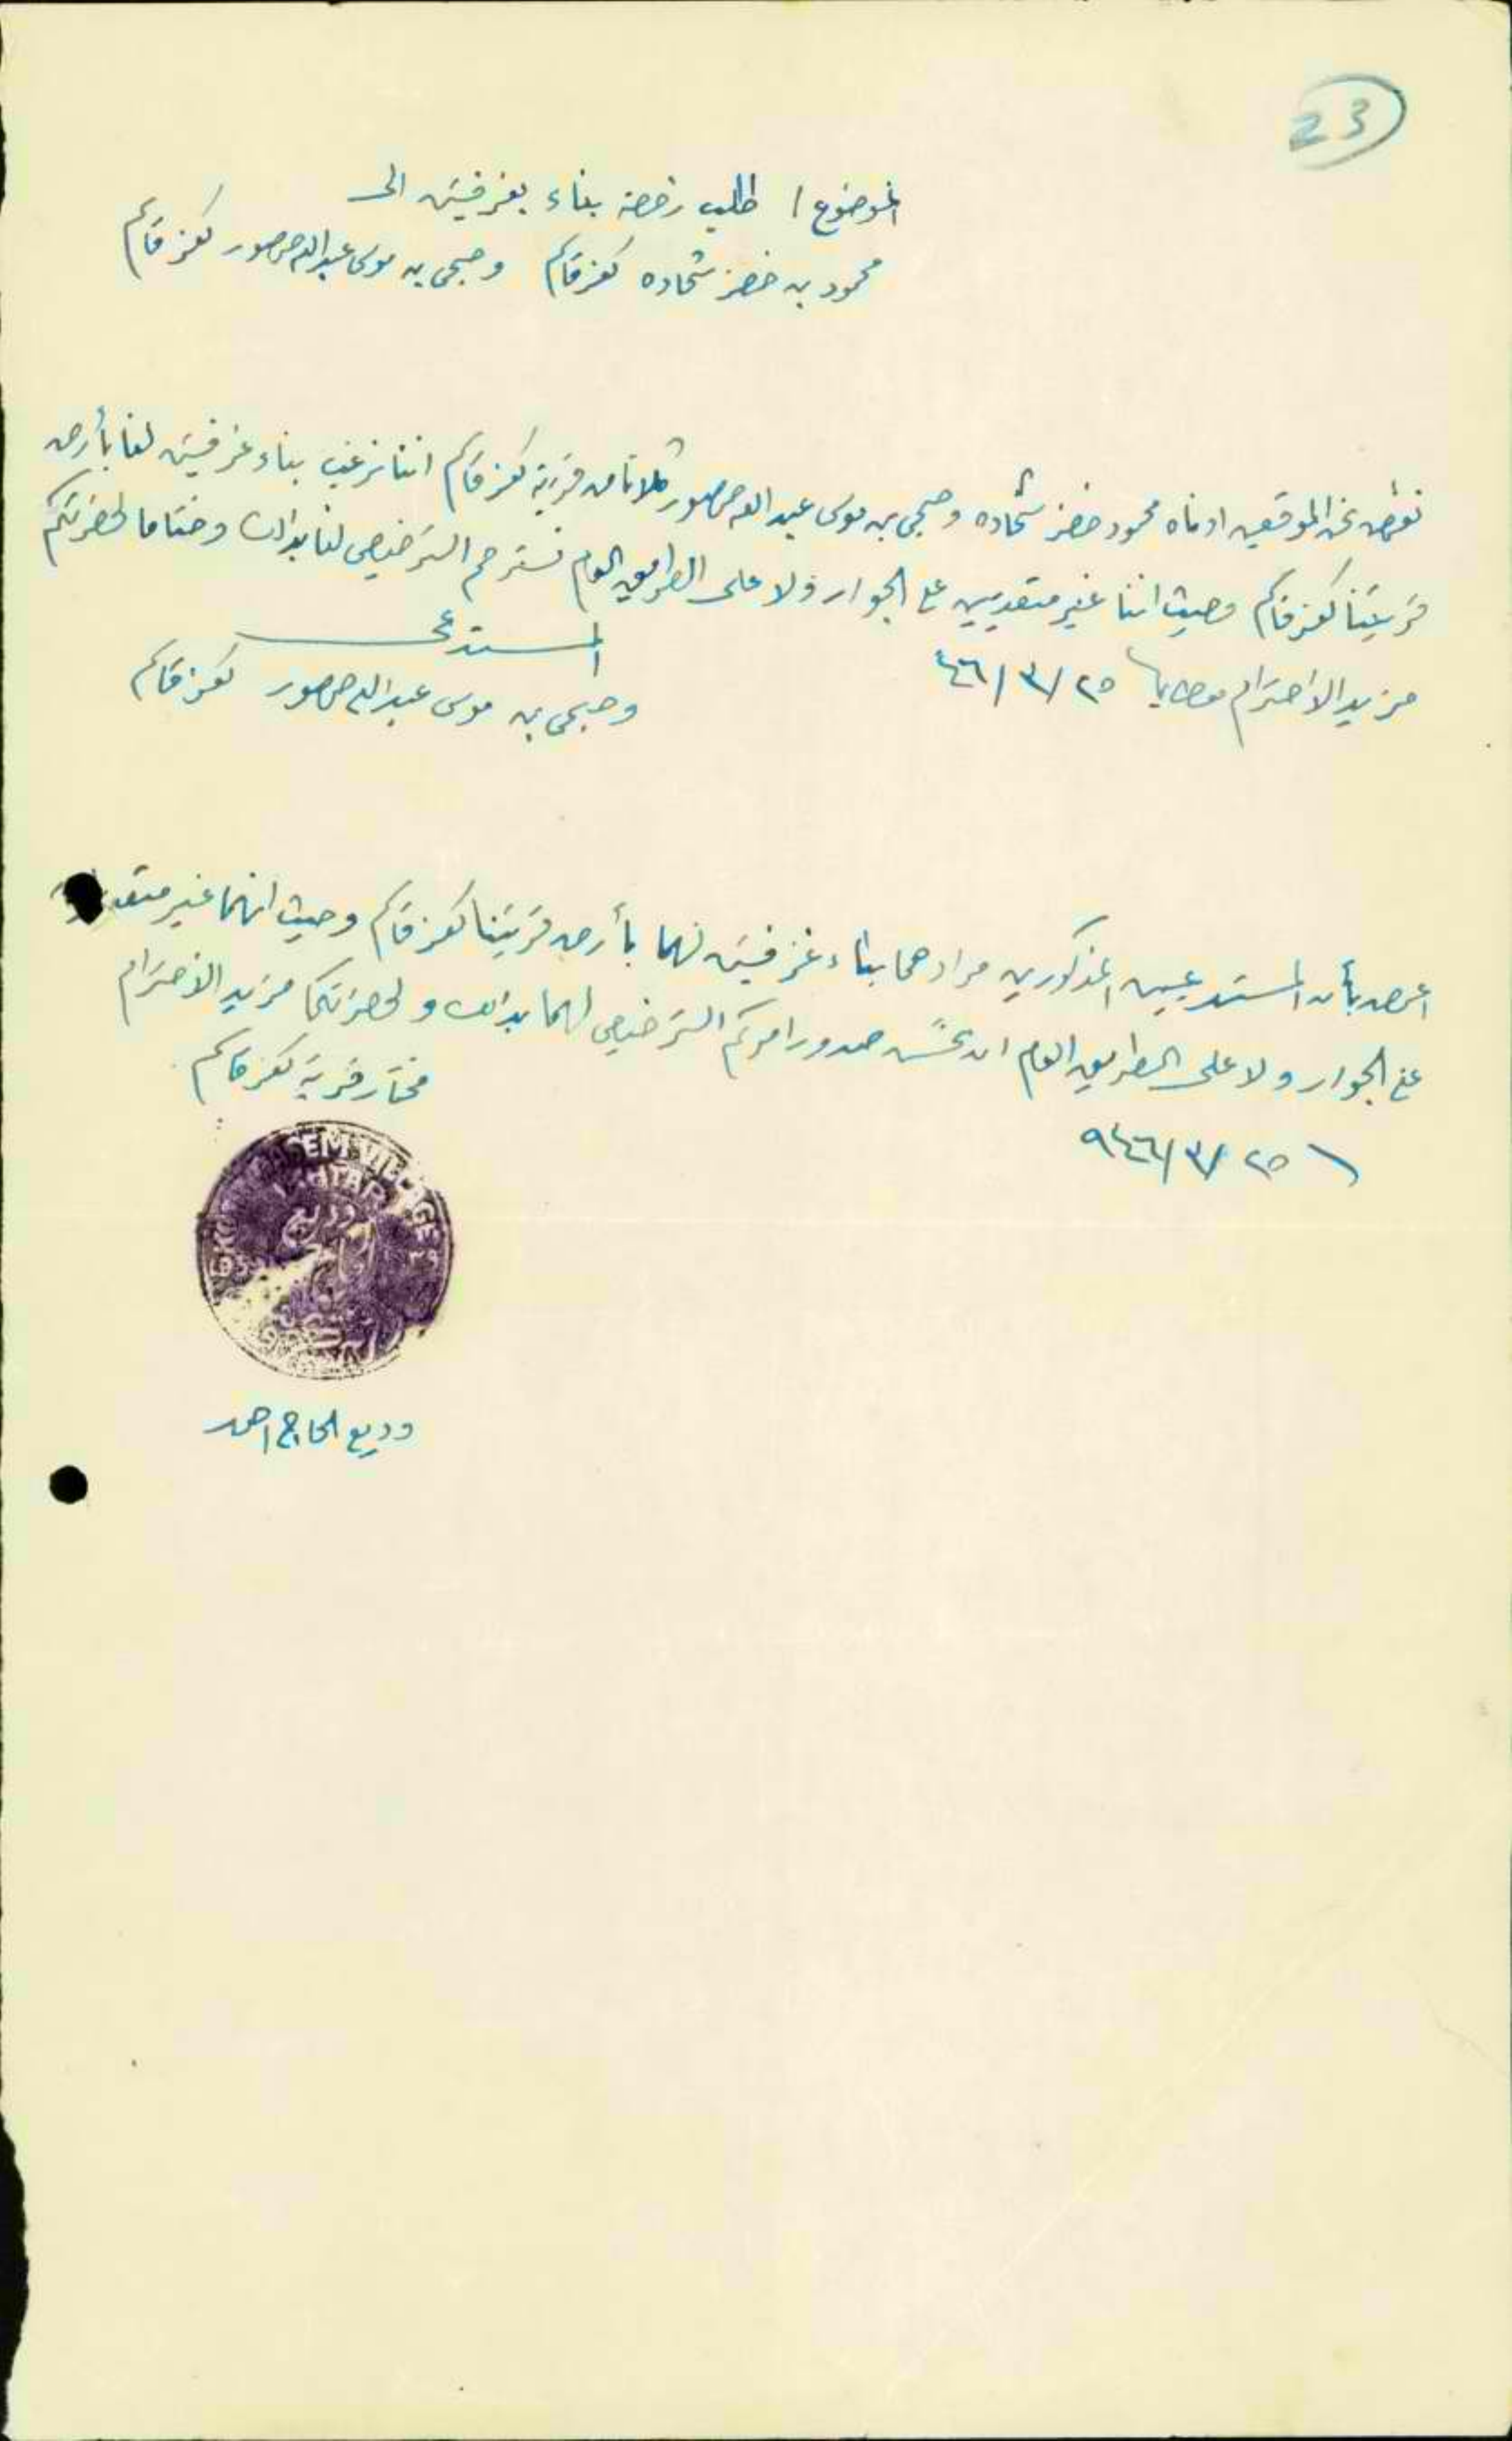 23
الموضوع / طلب رخصة بناء بغرفتين الى
محمود بن خضر شحاده كفرقاسم وصبحي بن موسى عبدالله صرصور كفرقاسم
نعرض نحن الموقعين ادناه محمود خضر شحاده وصبحي بن موسى عبدالله صرصور كلانا من قرية كفرقاسم اننا نرغب بناء غرفتين لنا بأرض
قريتنا كفرقاسم وحيث اننا غير متعديين على الجوار ولا على الطريق العام نسترحم الترخيص لنا بذلك وختاما لحضرتكم
مزيد الاحترام ٢٥/٣/٤٦
المستدعي
وصبحي بن موسى عبدالله صرصور كفرقاسم
اعرض بأن المستدعيين المذكورين مرادهما بناء غرفتين لهما بأرض قريتنا كفرقاسم وحيث انهما غير
على الجوار ولا على الطريق العام ان تحسن صدور امركم الترخيص لهما بذلك ولحضرتكما مزيد الاحترام
مختار قرية كفرقاسم
٢٥/٣/٩٤٦
KASEM VILLAGE
MUKHTAR
وديع الحاج احمد